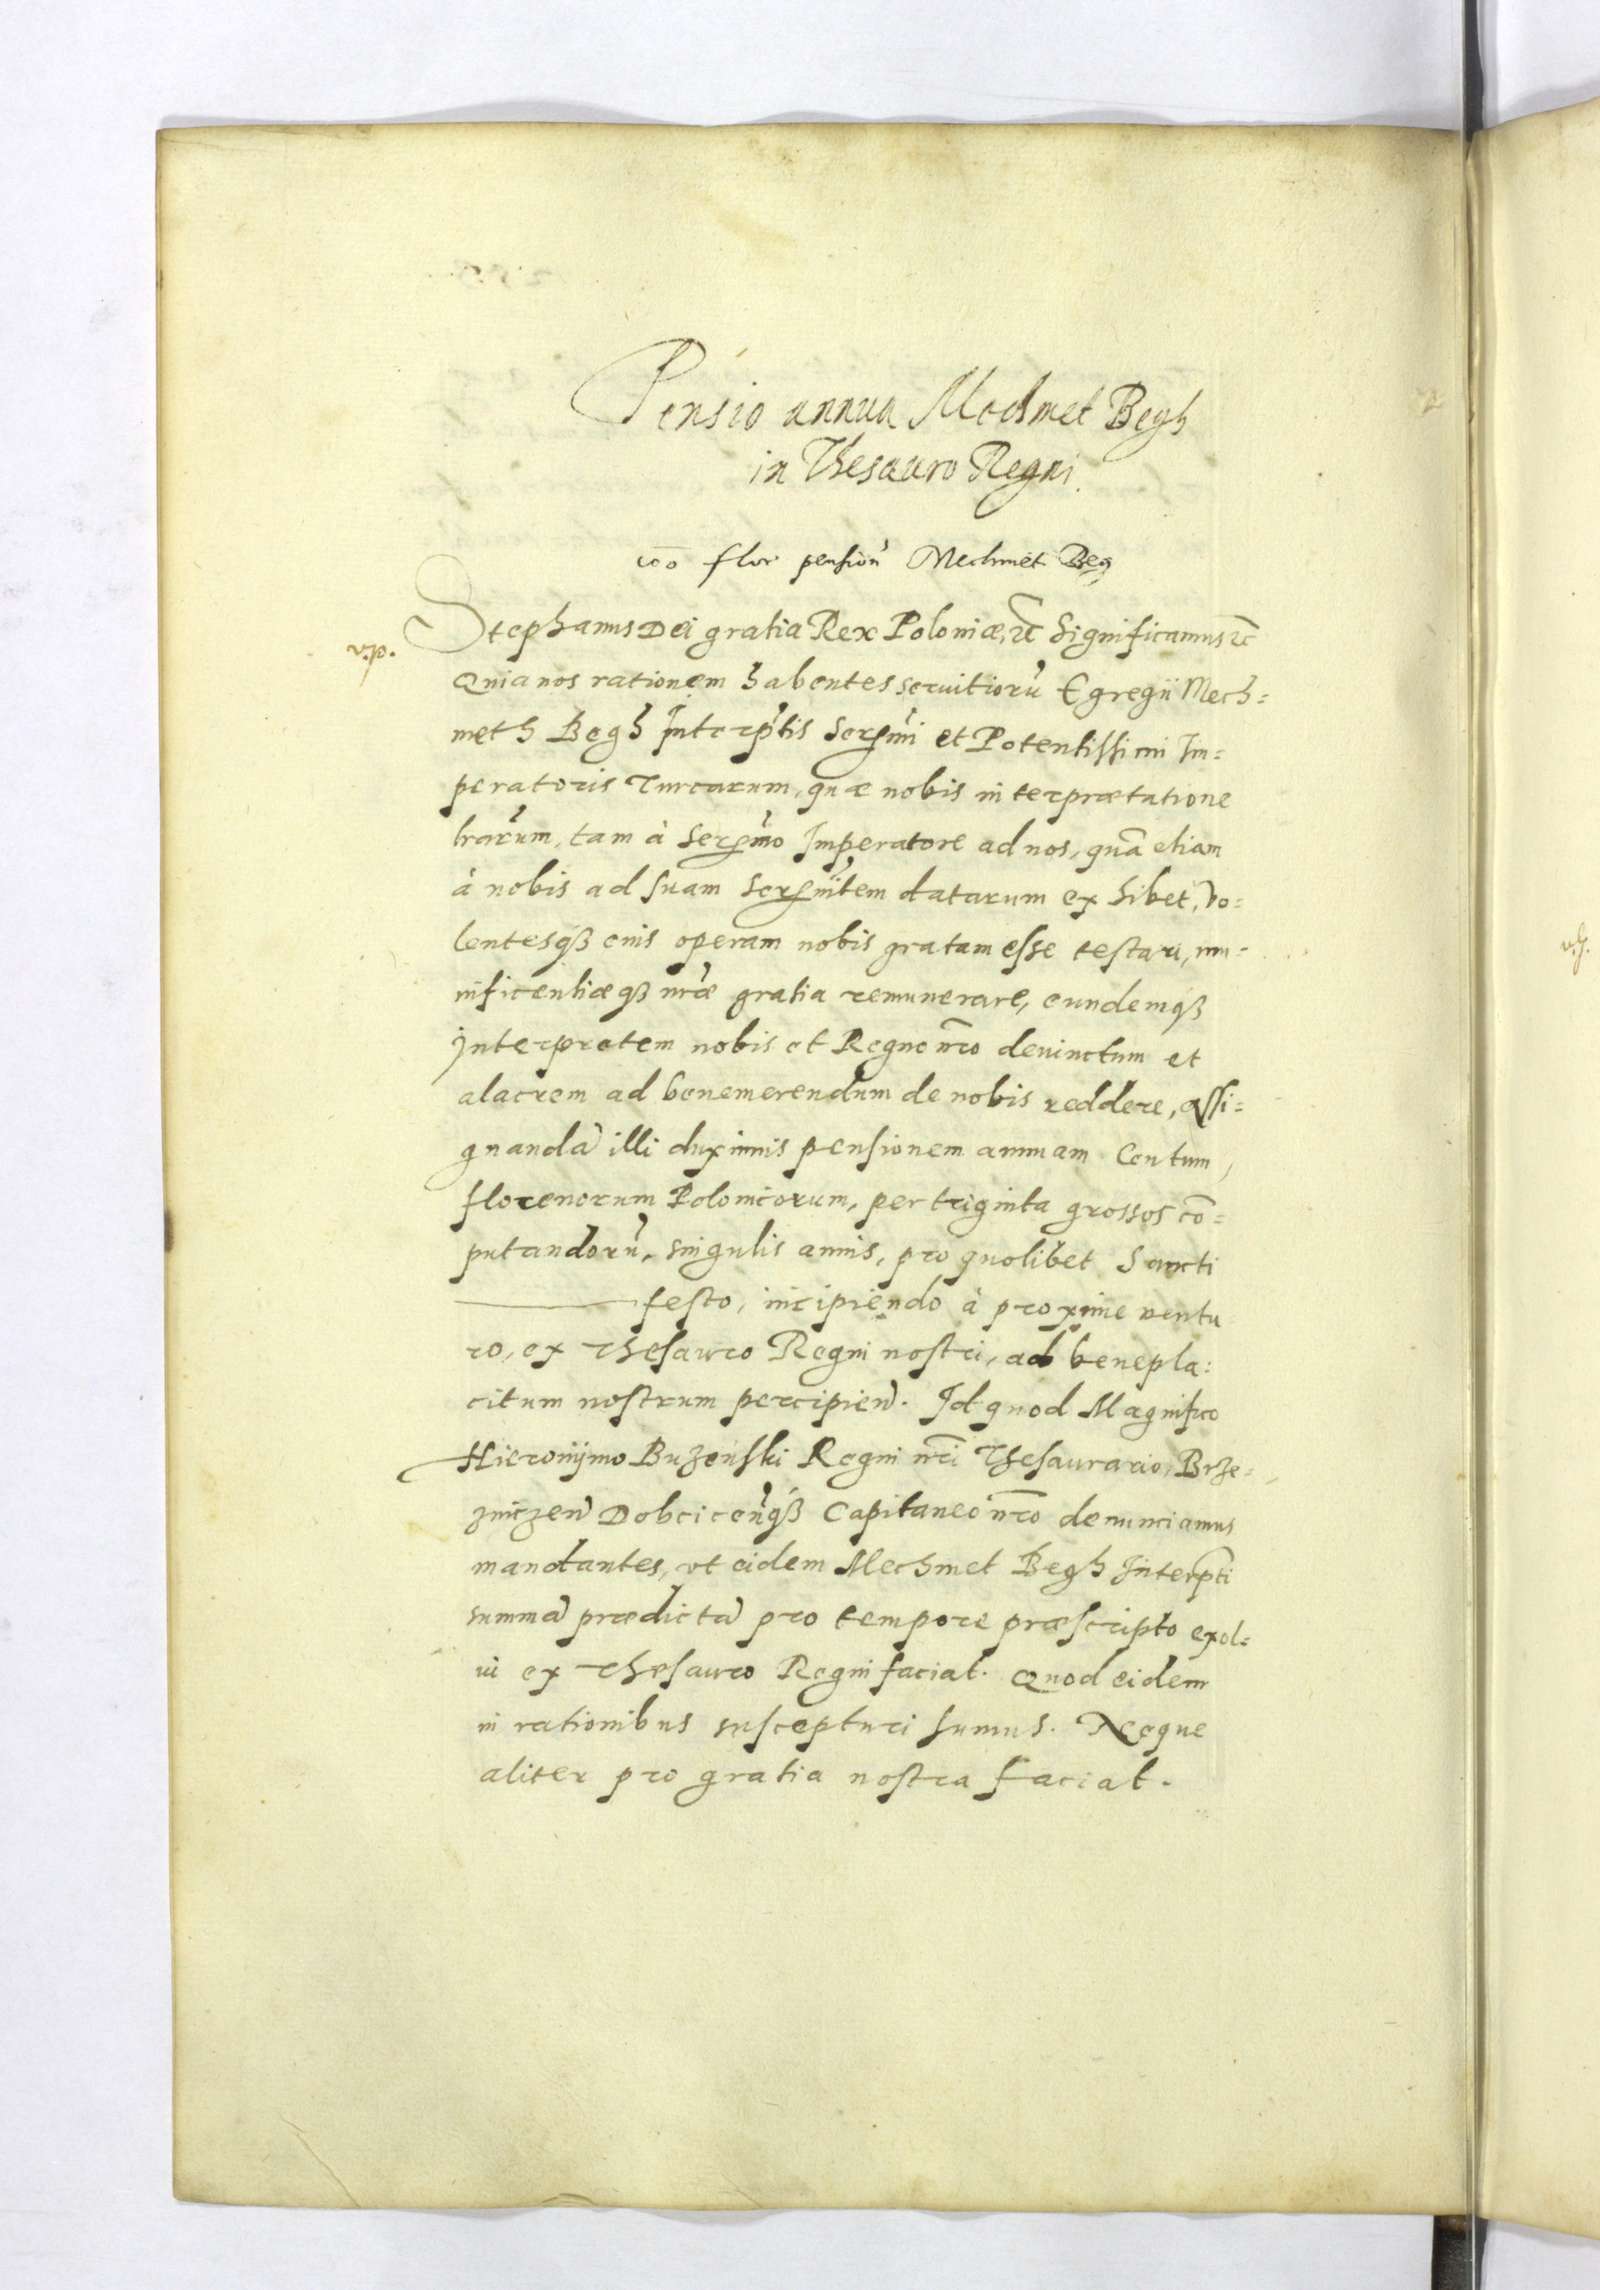 Pensio annua Mechmet Begh
in Thesauro Regni
flor pension̄ Mechmet Beg
v.p.
Stephanus Dei gratia Rex Poloniæ, &c̄ Significamus &c̄
Quia nos rationem habentes seruitiorū Egregii Mech=
meth Begh Interp̄tis Ser̄mi et Potentissimi Im=
peratoris Turcarum, quæ nobis interprætatione
lr̄arum, tam à Ser̄mo Imperatore ad nos, quā etiam
à nobis ad suam Ser̄mitem datarum exhibet, vo=
lentesqȝ eius operam nobis gratam esse testari, mu=
nificentiæqȝ nr̄æ gratia remunerare, eundemqȝ
Interpretem nobis et Regno nr̄o deuinctum et
alacrem ad benemerendum de nobis reddere, assi=
gnandā illi duximus pensionem annuam Centum,
florenorum Polonicorum, per triginta grossos cō=
putandorū, singulis annis, pro quolibet Sancti
festo, incipiendo à proxime ventu
ro, ex Thesauro Regni nostri, ad benepla:
citum nostrum percipien̄. Id quod Magnifico
Hieronymo Buzenski Regni nr̄i Thesaurario, Brze=
zniczen̄ Dobcicen̄qȝ Capitaneo nr̄o denunciamus
mandantes, vt eidem Mechmet Begh Interp̄ti
summā prædictā pro tempore præscripto exol=
ui ex Thesauro Regni faciat. Quod eidem
in rationibus suscepturi sumus. Neque
aliter pro gratia nostra faciat.